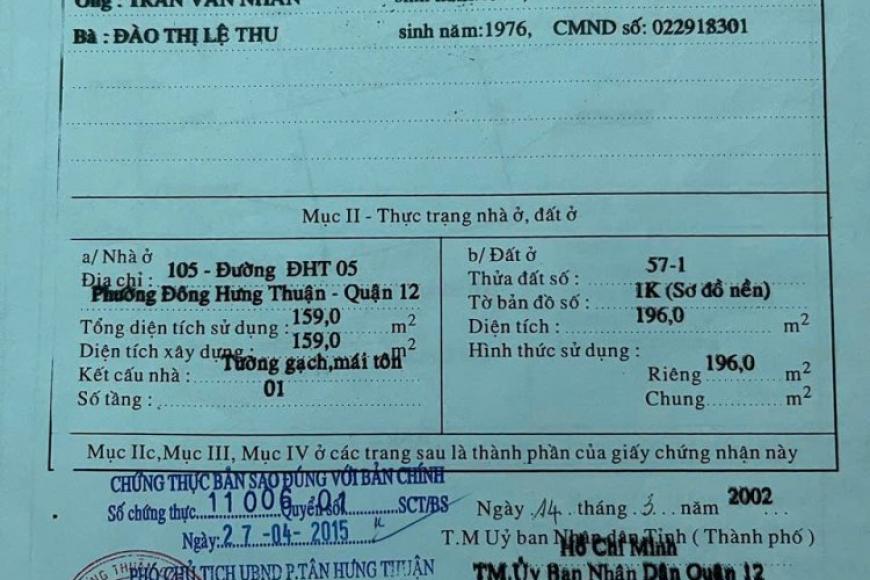 Ông : TRẦN VĂN NHÂN sinh năm
Bà : ĐÀO THỊ LỆ THU sinh năm:1976, CMND số: 022918301
Mục II - Thực trạng nhà ở, đất ở
a/ Nhà ở
Địa chỉ : 105 - Đường ĐHT 05
Phường Đông Hưng Thuận - Quận 12
Tổng diện tích sử dụng : 159,0 m2
Diện tích xây dựng : 159,0 m2
Kết cấu nhà : Tường gạch,mái tôn
Số tầng : 01
b/ Đất ở
Thửa đất số : 57-1
Tờ bản đồ số : 1K (Sơ đồ nền)
Diện tích : 196,0 m2
Hình thức sử dụng :
Riêng 196,0 m2
Chung m2
Mục IIc,Mục III, Mục IV ở các trang sau là thành phần của giấy chứng nhận này
CHỨNG THỰC BẢN SAO ĐÚNG VỚI BẢN CHÍNH
Số chứng thực 11006 Quyển số 01 SCT/BS
Ngày: 27 -04- 2015
PHÓ CHỦ TỊCH UBND P.TÂN HƯNG THUẬN
Ngày 14 tháng 3 năm 2002
T.M Uỷ ban Nhân dân Tỉnh ( Thành phố )
Hồ Chí Minh
TM.Ủy Ban Nhân Dân Quận 12